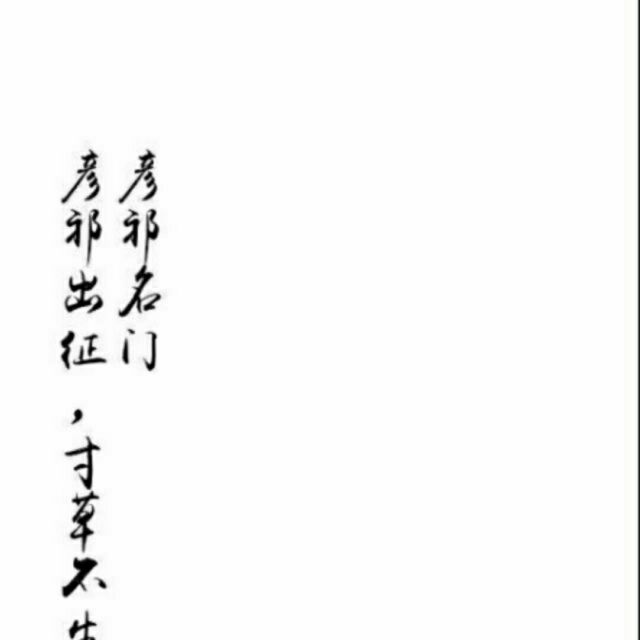 彦祁名门
彦祁出征，寸草不生